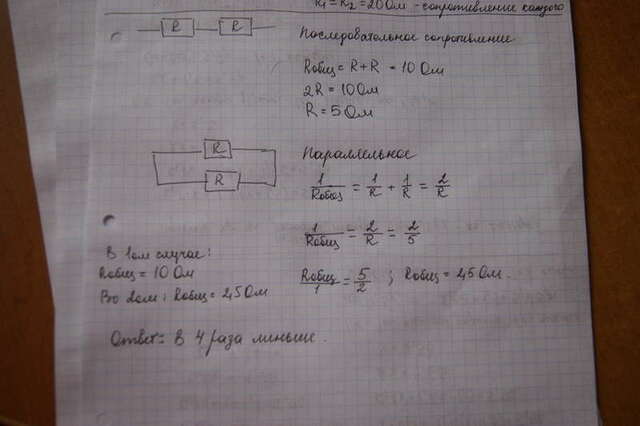 R₁ = R₂ = 20 Ом - сопротивление каждого
R R
Последовательное сопротивление
Rобщ = R + R = 10 Ом
2R = 10 Ом
R = 5 Ом
R
R
Параллельное
1/Rобщ = 1/R + 1/R = 2/R
1/Rобщ = 2/R = 2/5
В 1ом случае:
Rобщ = 10 Ом
Во 2ом: Rобщ = 2,5 Ом
Rобщ/1 = 5/2 ; Rобщ = 2,5 Ом.
Ответ: В 4 раза меньше.